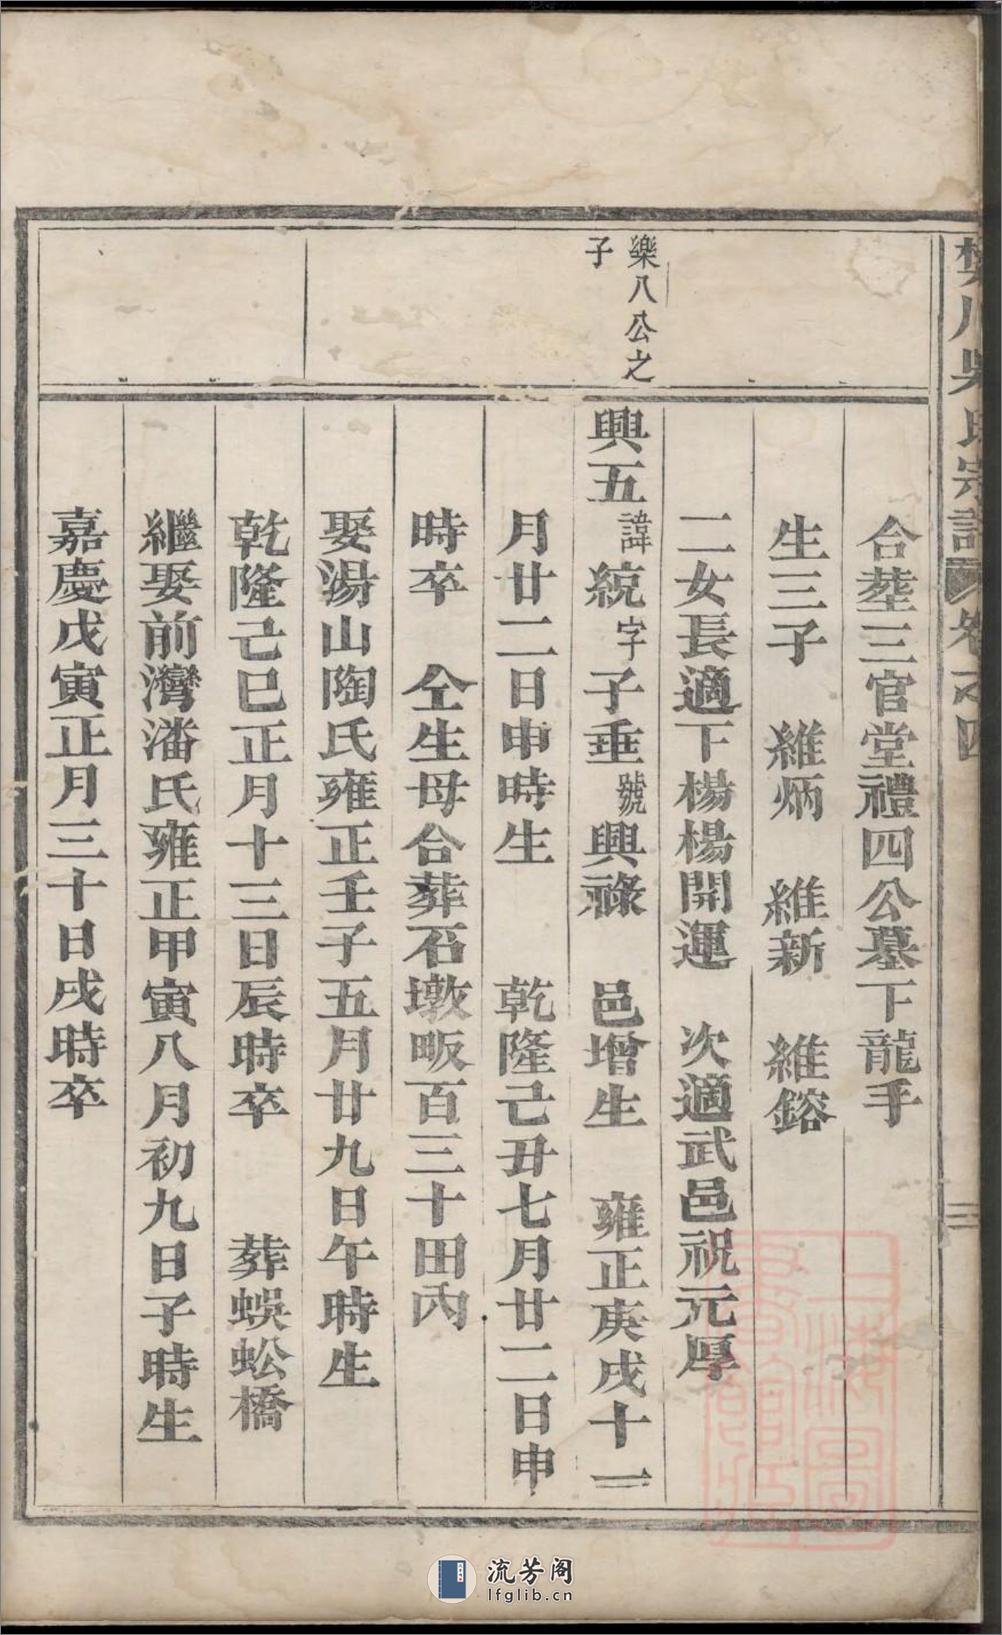 樊川吳氏宗譜 卷之四 三
合塟三官堂禮四公墓下龍手
生三子 維炳 維新 維鎔
二女長適下楊楊開運 次適武邑祝元厚
樂八公之
子
興五諱統字子垂號興祿 邑增生 雍正庚戌十一
月廿二日申時生 乾隆己丑七月廿二日申
時卒 仝生母合葬石墩畈百三十田內
娶湯山陶氏雍正壬子五月廿九日午時生
乾隆己巳正月十三日辰時卒 葬蜈蚣橋
繼娶前灣潘氏雍正甲寅八月初九日子時生
嘉慶戊寅正月三十日戌時卒
流芳阁
lfglib.cn